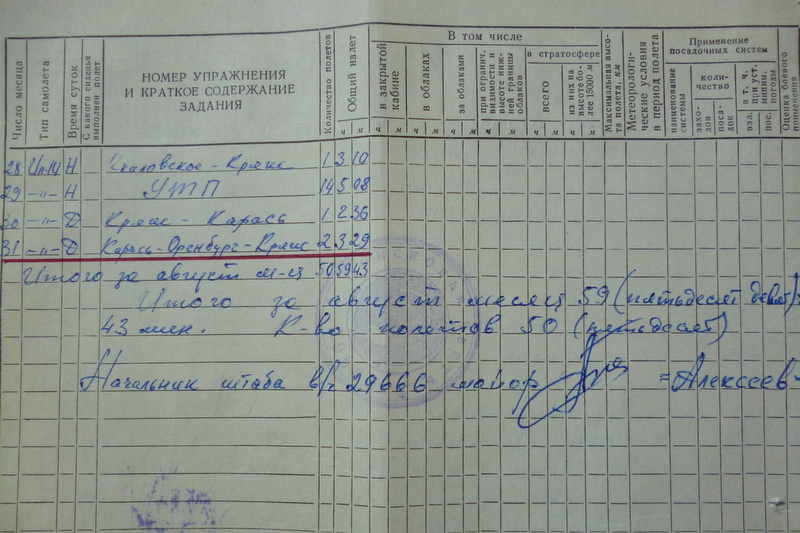 Число месяца
Тип самолета
Время суток
С какого сиденья
выполнен полет
НОМЕР УПРАЖНЕНИЯ
И КРАТКОЕ СОДЕРЖАНИЕ
ЗАДАНИЯ
Количество полетов
Общий налет
ч м
В том числе
в закрытой
кабине
ч м
в облаках
ч м
за облаками
ч м
при огранич.
видимости и
высоте ниж-
ней границы
облаков
ч м
в стратосфере
всего
ч м
из них на
высоте бо-
лее 15000 м
ч м
Максимальная высо-
та полета, км
Метеорологи-
ческие условия
в период полета
Применение
посадочных систем
наименование
системы
коли-
чество
захо-
дов
поса-
док
в т. ч.
при уст.
миним.
погоды
взл.
пос.
Оценка боевого
применения
28 Ил-14 Н Чкаловское-Кряж 1 3 10
29 -"- Н УТП 14 5 08
30 -"- Д Кряж - Карась 1 2 36
31 -"- Д Карась-Оренбург-Кряж 2 3 29
Итого за август м-ц 50 59 43
Итого за август месяц 59 (пятьдесят девять)
43 мин. К-во полетов 50 (пятьдесят)
Начальник штаба в/ч 29666 майор =Алексеев-